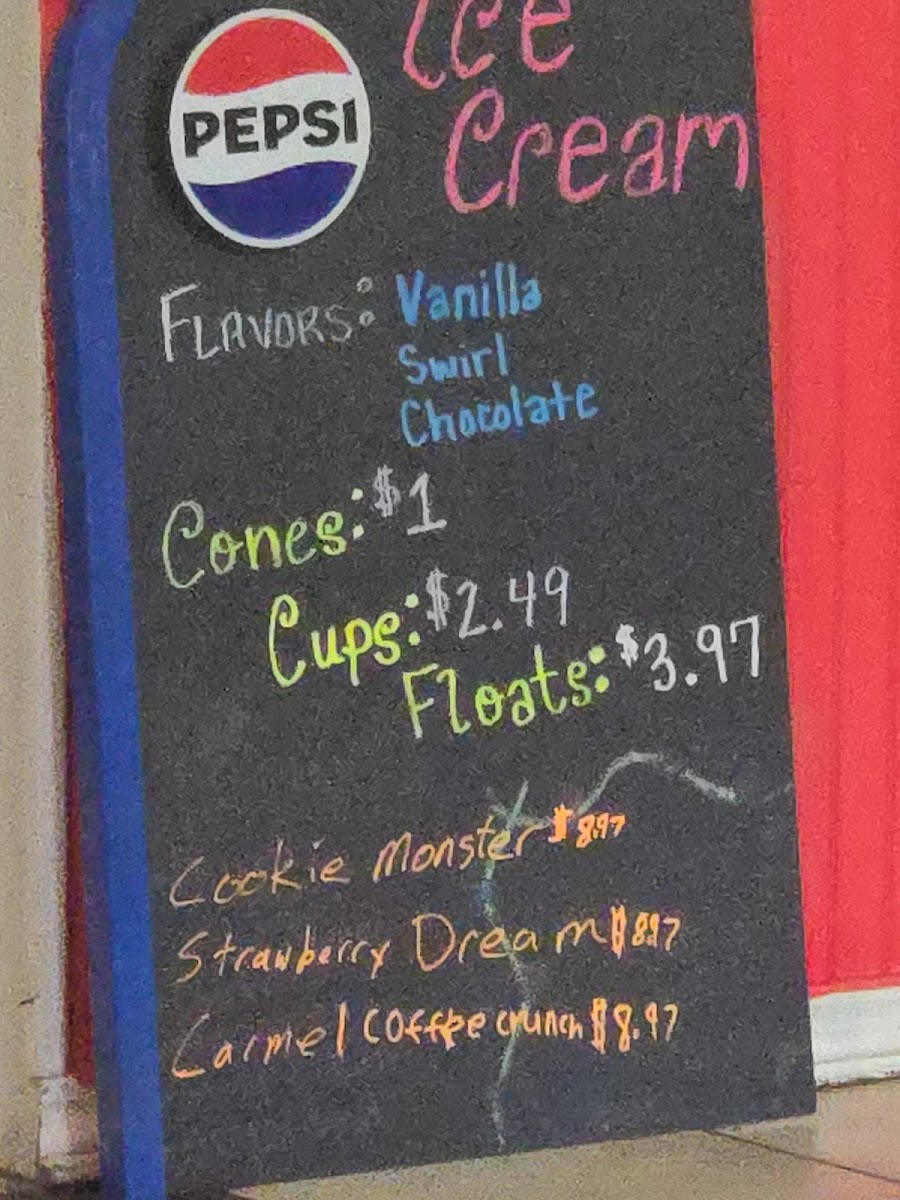 PEPSI
Ice
Cream
FLAVORS: Vanilla
Swirl
Chocolate
Cones: $1
Cups: $2.49
Floats: $3.97
Cookie Monster $8.97
Strawberry Dream $8.97
Carmel Coffee crunch $8.97